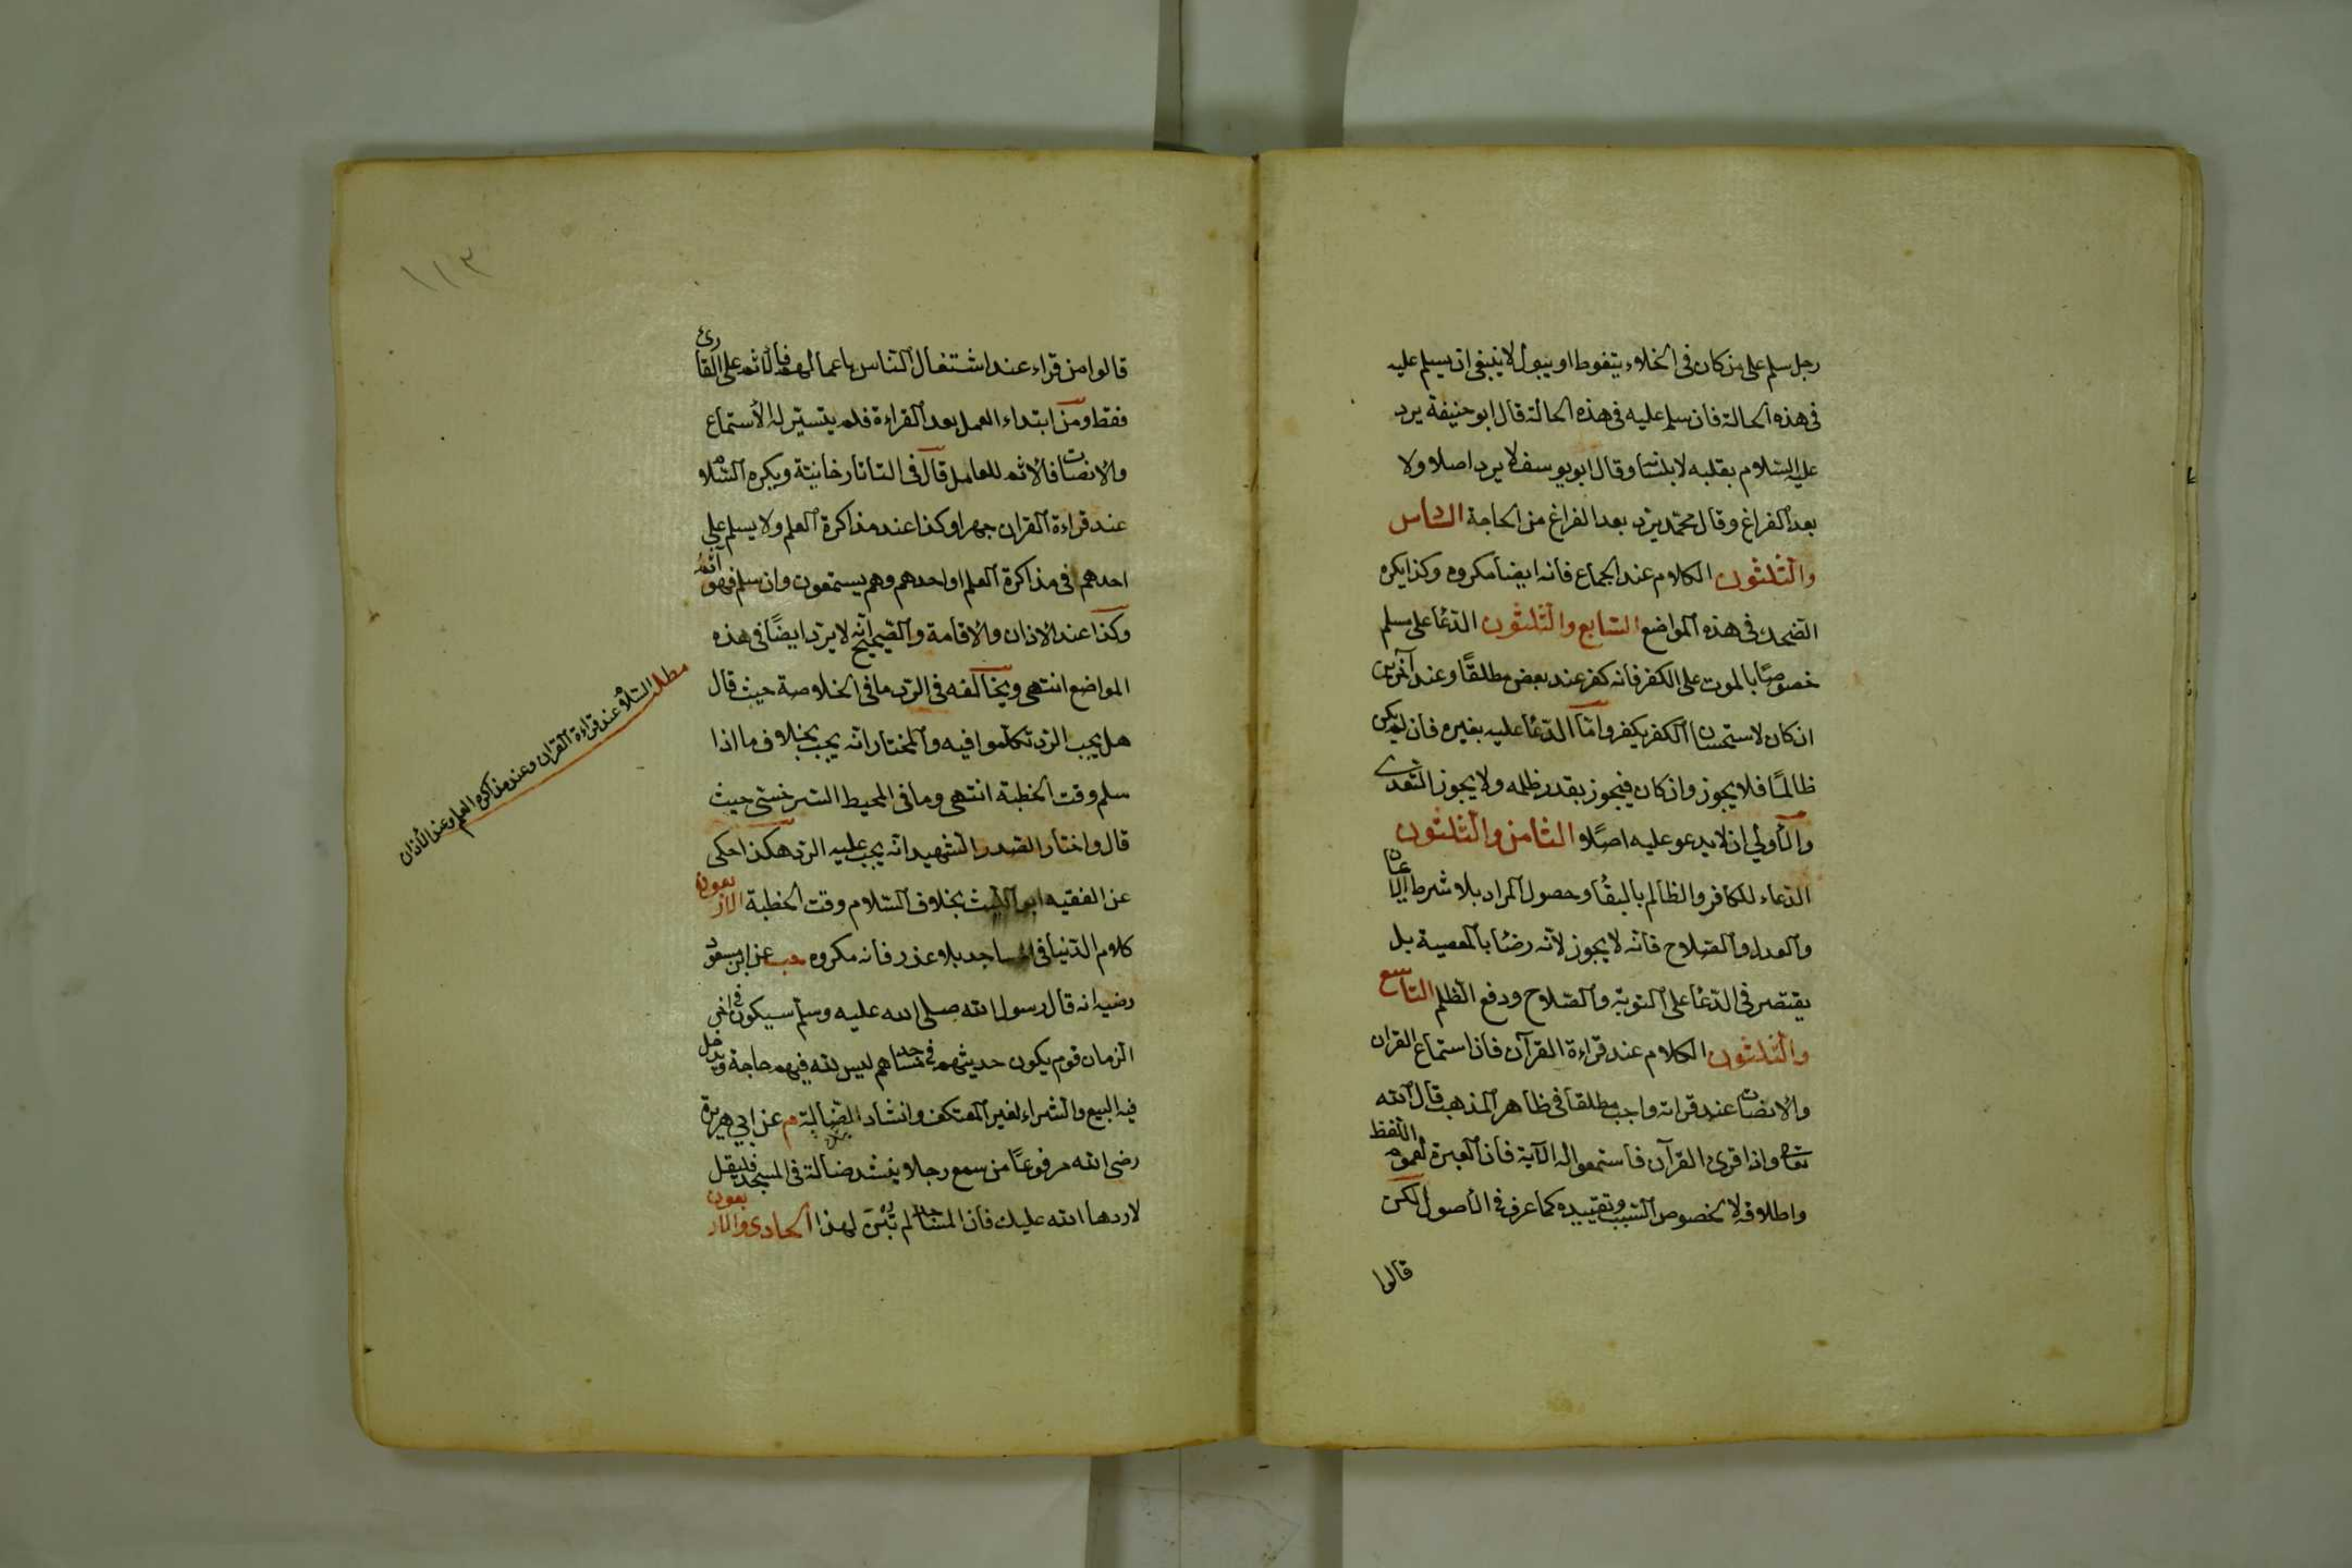 رجل سلم على من كان فى الخلاء يتغوط او يبول لا ينبغى ان يسلم عليه
فى هذه الحالة فان سلم عليه فى هذه الحالة قال ابو حنيفة يرد
عليه السلام بقلبه لا بلسانه وقال ابو يوسف لا يرد اصلا ولا
بعد الفراغ وقال محمد يرد بعد الفراغ من الحاجة السادس
والثلثون الكلام عند الجماع فانه ايضا مكروه وكذا يكره
الضحك فى هذه المواضع السابع والثلثون الدعا على مسلم
خصوصًا بالموت على الكفر فانه كفر عند بعض مطلقًا وعند آخرين
ان كان لاستحسان الكفر يكفر وامّا الدعا عليه بغيره فان لم يكن
ظالمًا فلا يجوز وان كان فيجوز بقدر ظلمه ولا يجوز التعدى
والأولى ان لا يدعو عليه اصلًا الثامن والثلثون
الدعاء للكافر والظالم بالبقا وحصول المراد بلا شرط الايمان
والعدل والصلاح فانه لا يجوز لأنه رضًا بالمعصية بل
يقتصر فى الدعا على التوبة والصلاح ودفع الظلم التاسع
والثلثون الكلام عند قراءة القرآن فان استماع القران
والانصات عند قراته واجب مطلقا فى ظاهر المذهب قال الله
تعالى واذا قرئ القرآن فاستمعوا له الآية فان العبرة لعموم اللفظ
واطلاقه لا لخصوص السبب وتقييده كما عرف فى الأصول لكن
قالوا
١١٣
قالوا من قراء عند اشتغال الناس باعمالهم فالأثم على القارئ
فقط ومن ابتداء العمل بعد القراءة فلم يتسير له الأستماع
والانصات فالأثم للعامل قال فى التاتارخانية ويكره السلام
عند قراءة القران جهرا وكذا عند مذاكرة العلم ولا يسلم على
احدهم فى مذاكرة العلم او احدهم وهم يستمعون وان سلم فهو آثم
وكذا عند الاذان والاقامة والصحيح انه لا يرد ايضًا فى هذه
المواضع انتهى ويخالفه فى الرد ما فى الخلاصة حيث قال
هل يجب الرد تكلموا فيه والمختار انه يجب بخلاف ما اذا
سلم وقت الخطبة انتهى وما فى المحيط السرخسى حيث
قال واختار الصدر الشهيد انه يجب عليه الرد هكذا حكى
عن الفقيه ابو الليث بخلاف السلام وقت الخطبة الاربعون
كلام الدنيا فى المساجد بلا عذر فانه مكروه حب عن ابن مسعود
رضيه انه قال رسول الله صلى الله عليه وسلم سيكون فى اخر
الزمان قوم يكون حديثهم فى مساجدهم ليس لله فيهم حاجة ويدخل
فيه البيع والشراء لغير المعتكف وانشاد الضالة م عن ابي هريرة
رضى الله مرفوعًا من سمع رجلا ينشد ضالة فى المسجد فليقل
لا ردها الله عليك فان المساجد لم تبن لهذا الحادى والاربعون
مطلب السلام عند قراءة القران وعند مذاكرة العلم وعند الأذان